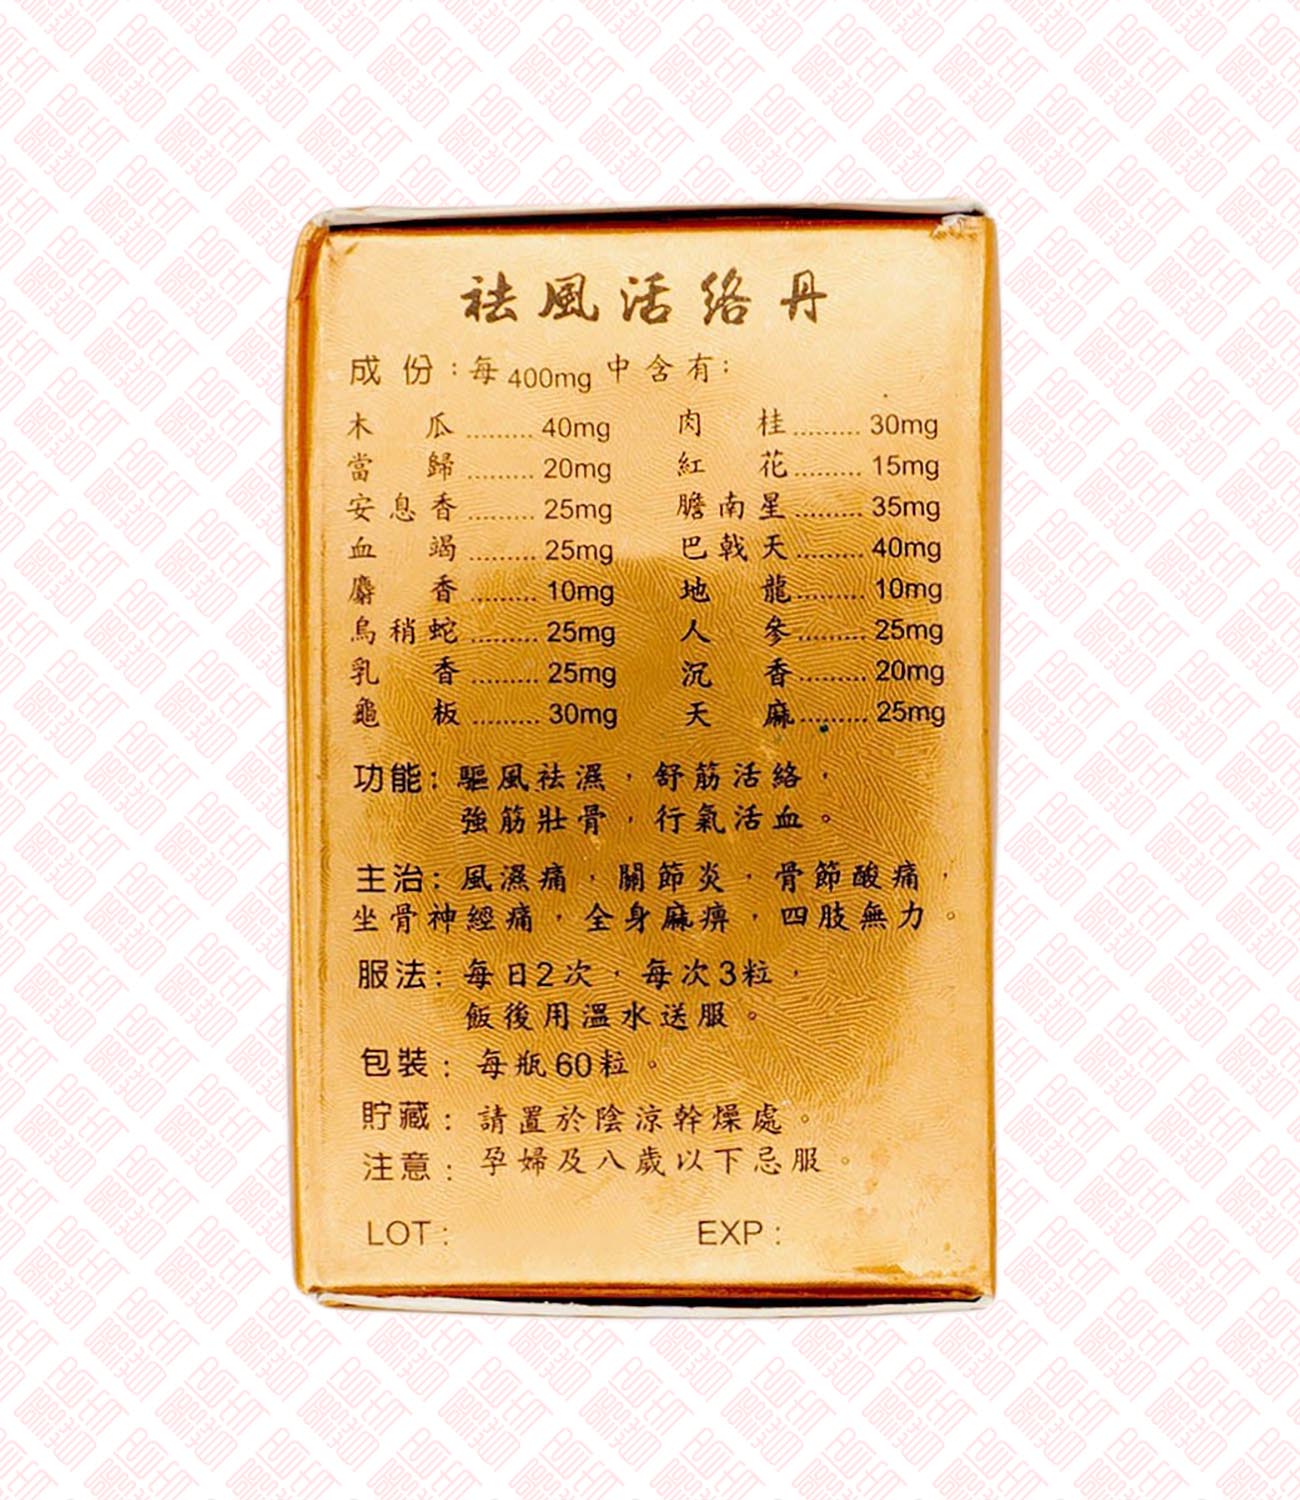 祛風活絡丹
成份：每400mg中含有：
木瓜.........40mg 肉桂.........30mg
當歸.........20mg 紅花.........15mg
安息香.........25mg 膽南星.........35mg
血竭.........25mg 巴戟天.........40mg
麝香.........10mg 地龍.........10mg
烏稍蛇.........25mg 人參.........25mg
乳香.........25mg 沉香.........20mg
龜板.........30mg 天麻.........25mg
功能：驅風祛濕，舒筋活絡，
強筋壯骨，行氣活血。
主治：風濕痛，關節炎，骨節酸痛，
坐骨神經痛，全身麻痹，四肢無力。
服法：每日2次，每次3粒，
飯後用溫水送服。
包裝：每瓶60粒。
貯藏：請置於陰涼幹燥處。
注意：孕婦及八歲以下忌服。
LOT: EXP: